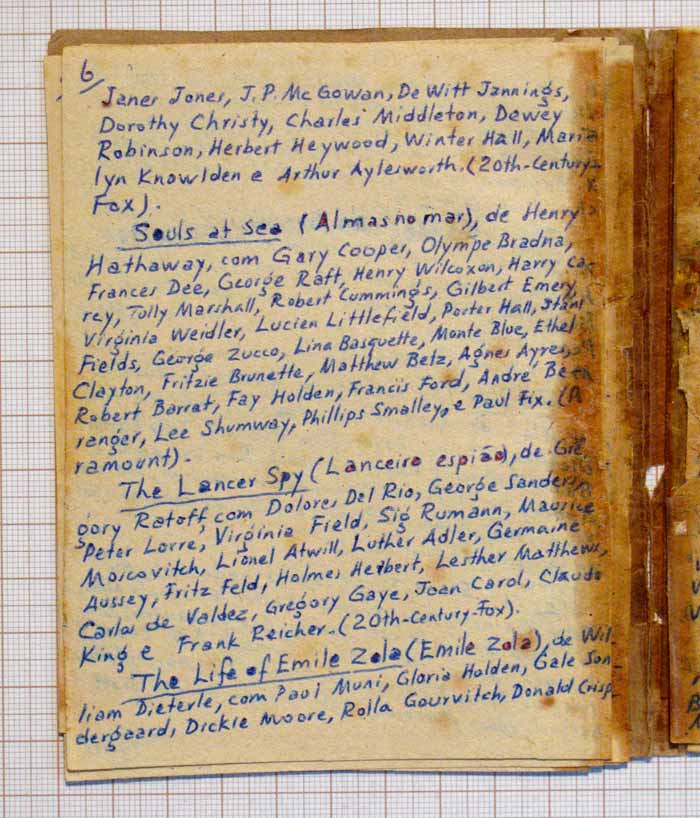 6/
Janer Jones, J. P. Mc Gowan, De Witt Jannings,
Dorothy Christy, Charles Middleton, Dewey
Robinson, Herbert Heywood, Winter Hall, Mari
lyn Knowlden e Arthur Aylesworth. (20th-Century-
Fox).
Souls at Sea (Almas no mar), de Henry
Hathaway, com Gary Cooper, Olympe Bradna,
Frances Dee, George Raft, Henry Wilcoxon, Harry Ca-
rey, Tully Marshall, Robert Cummings, Gilbert Emery,
Virginia Weidler, Lucien Littlefield, Porter Hall, Stanl
Fields, George Zucco, Lina Basquette, Monte Blue, Ethel
Clayton, Fritzie Brunette, Matthew Betz, Agnes Ayres,
Robert Barrat, Fay Holden, Francis Ford, André Be
ranger, Lee Shumway, Phillips Smalley, e Paul Fix. (P
ramount).
The Lancer Spy (Lanceiro espião), de Gre
gory Ratoff, com Dolores Del Rio, George Sanders,
Peter Lorre, Virginia Field, Sig Rumann, Maurice
Moscovitch, Lionel Atwill, Luther Adler, Germaine
Aussey, Fritz Feld, Holmes Herbert, Lesther Matthews,
Carlos de Valdez, Gregory Gaye, Joan Carol, Claude
King e Frank Reicher. (20th-Century-Fox).
The Life of Emile Zola (Emile Zola), de Wil-
liam Dieterle, com Paul Muni, Gloria Holden, Gale Son-
dergaard, Dickie Moore, Rolla Gourvitch, Donald Crisp_